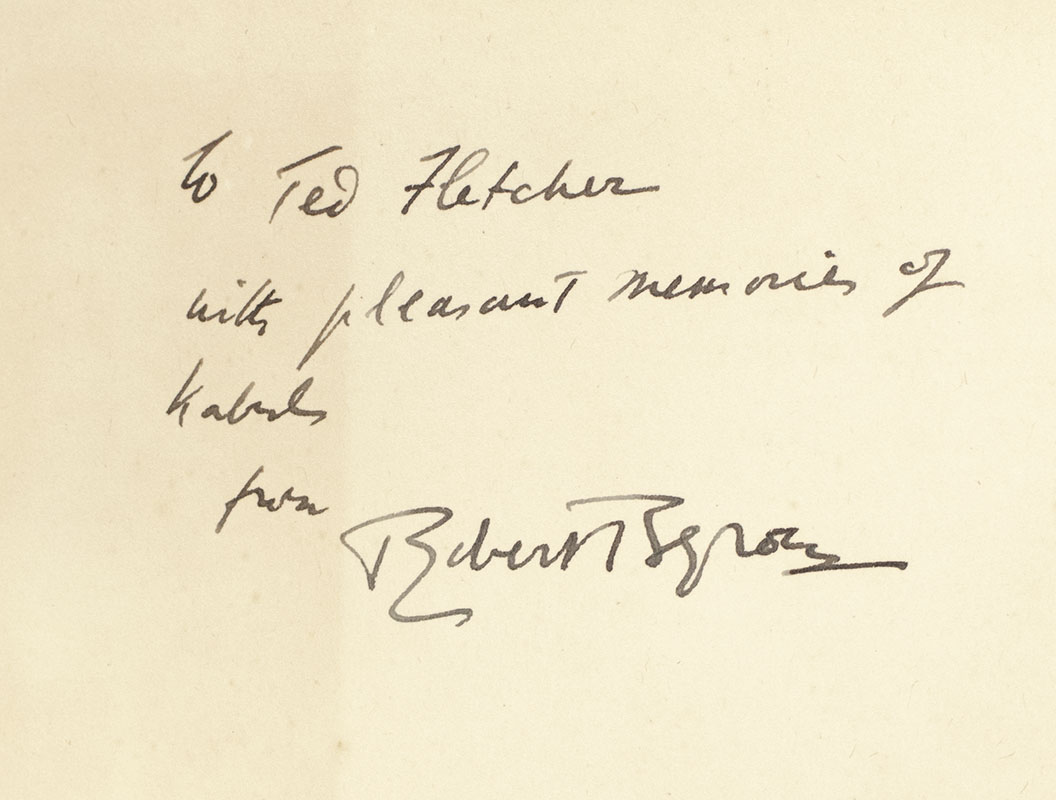 To Ted Fletcher
with pleasant memories of
Kabul
from Robert Byron